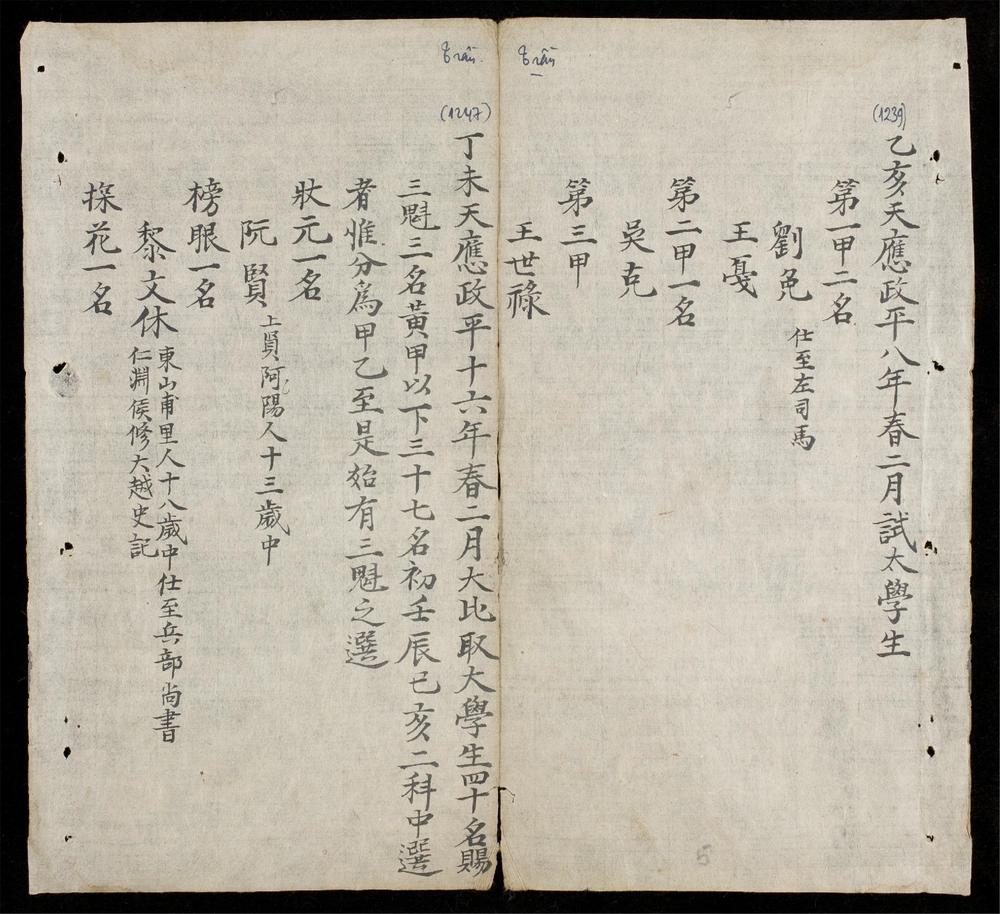 Trần
(1239)
乙亥天應政平八年春二月試太學生
第一甲二名
劉免 仕至左司馬
王戞
第二甲一名
吳克
第三甲
王世祿
Trần
(1247)
丁未天應政平十六年春二月大比取大學生四十名賜
三魁三名黃甲以下三十七名初壬辰已亥二科中選
者惟分爲甲乙至是始有三魁之選
狀元一名
阮賢 上賢阿陽人十三歲中
榜眼一名
黎文休 東山甫里人十八歲中仕至兵部尚書
仁淵侯修大越史記
探花一名